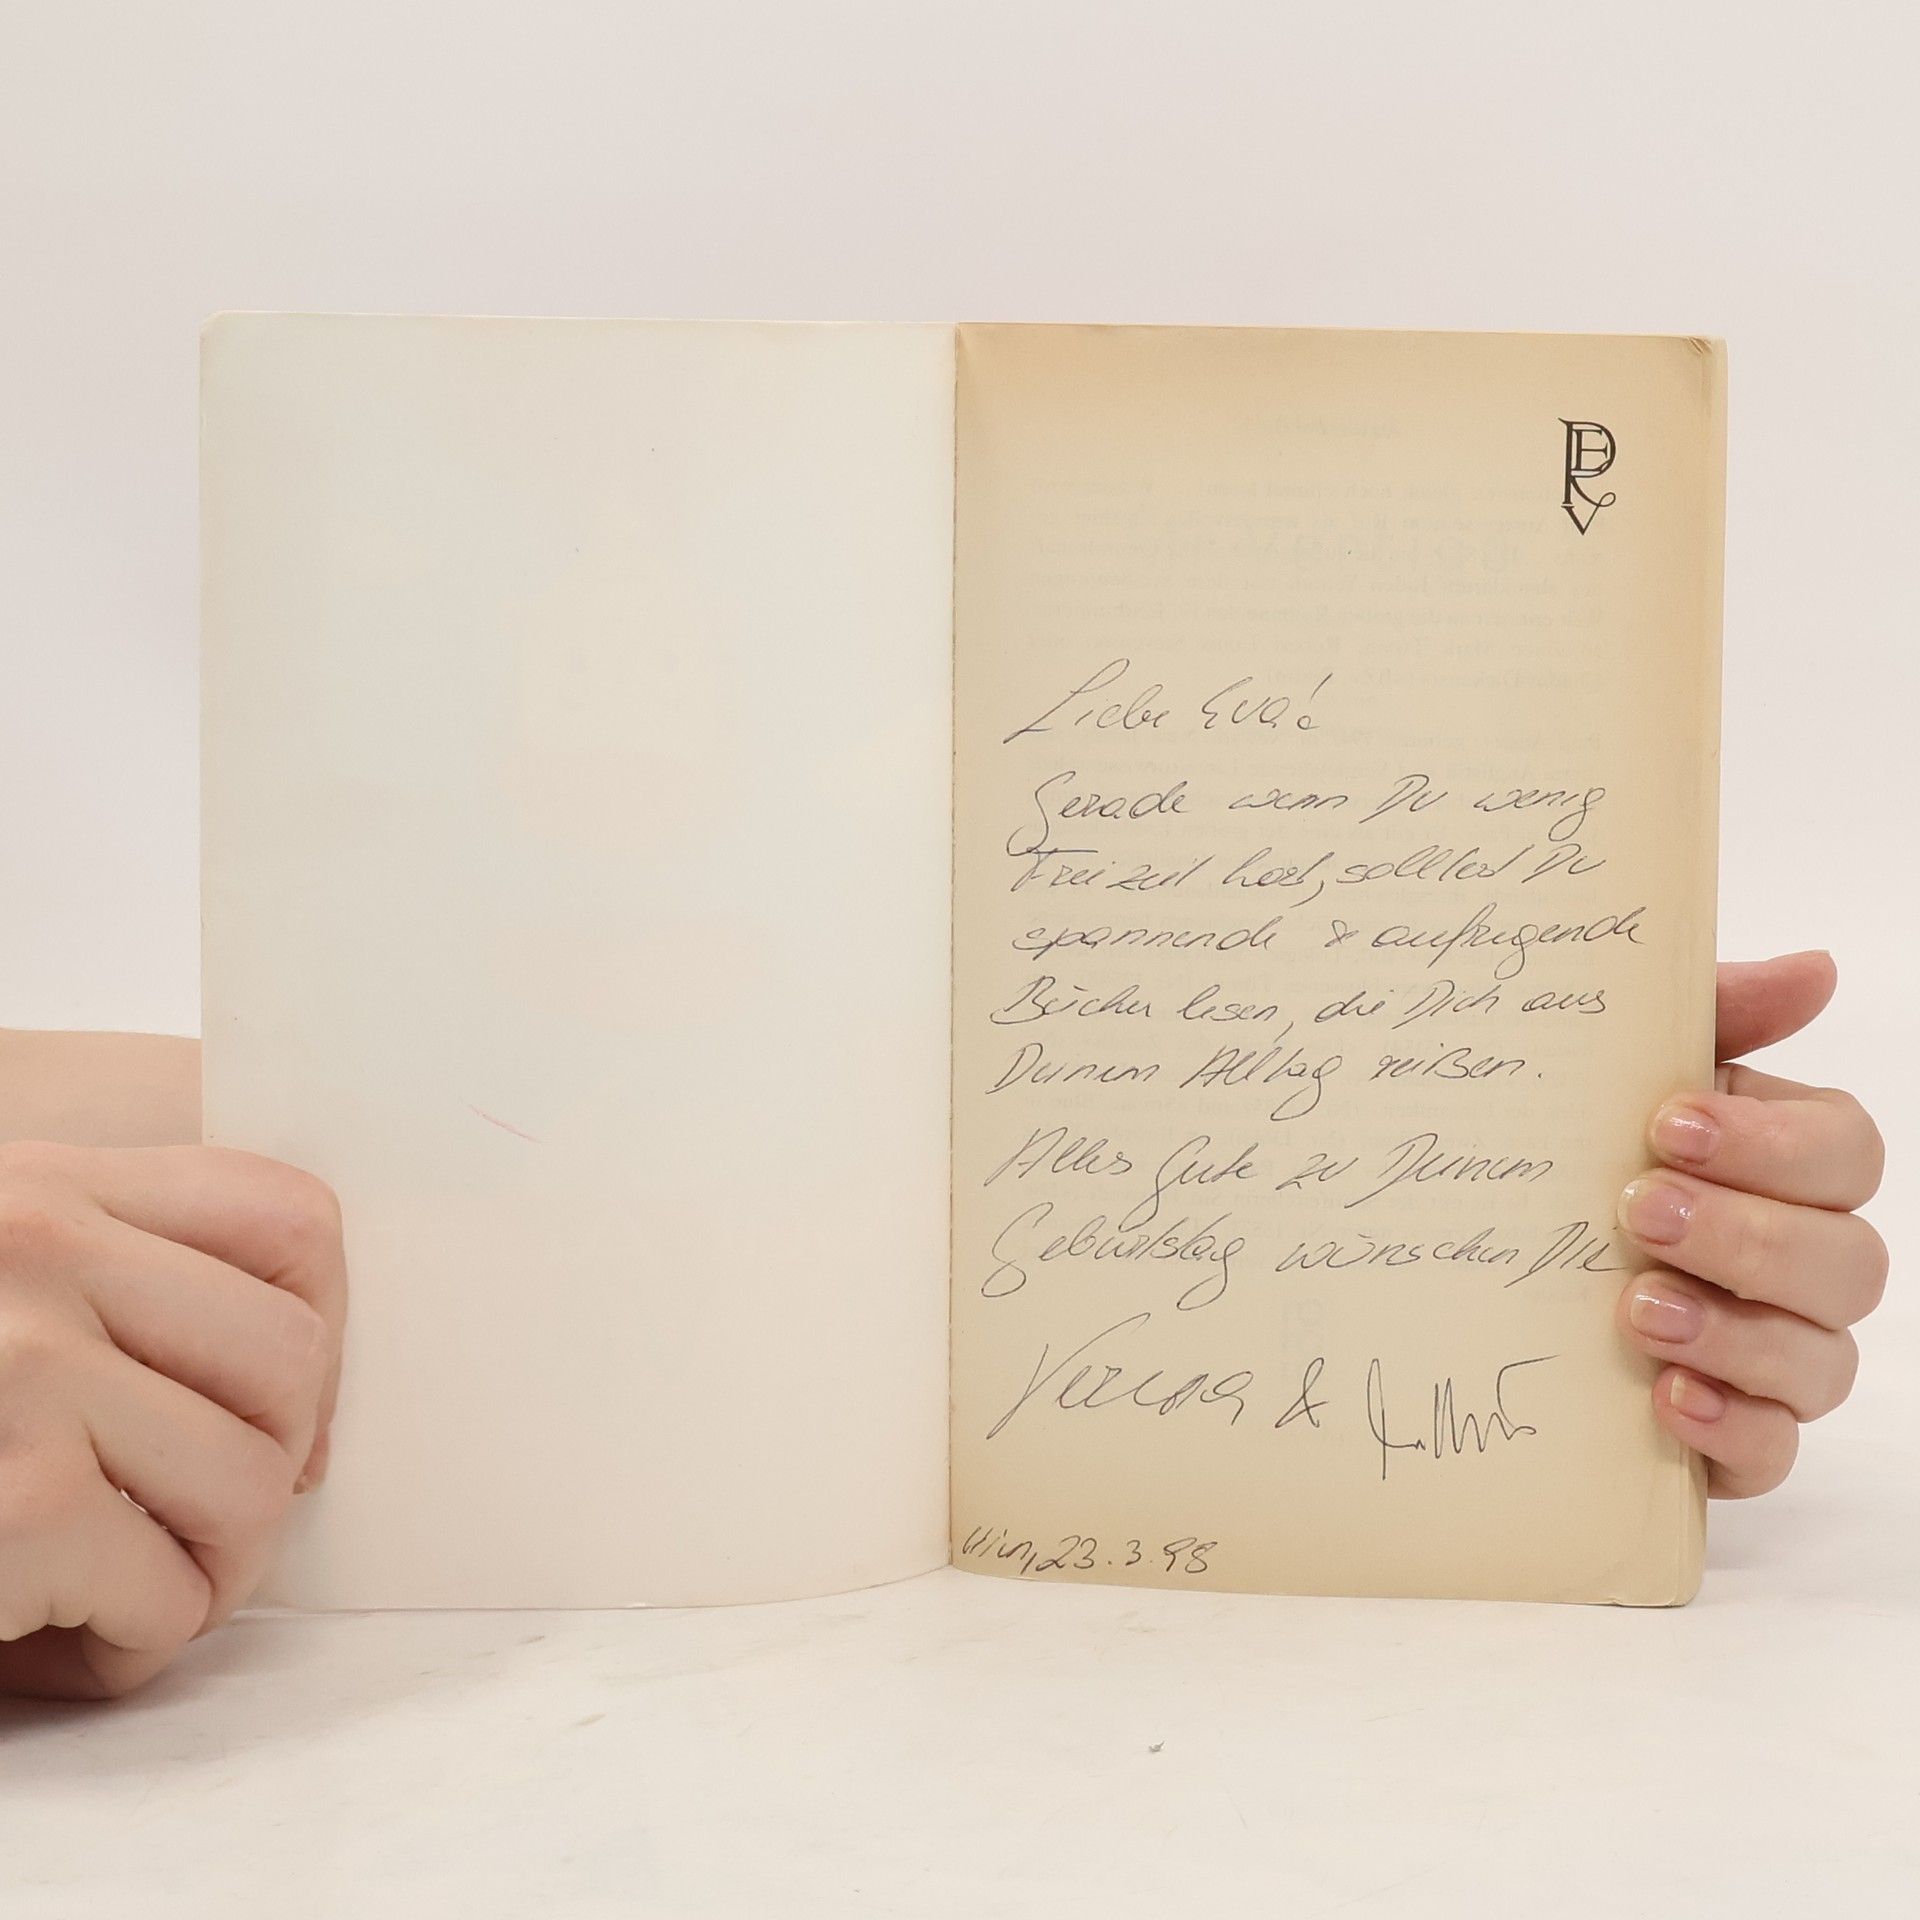 PERV
Liebe Eva!
Gerade wenn Du wenig
Freizeit hast, solltest Du
spannende & aufregende
Bücher lesen, die Dich aus
Deinem Alltag reißen.
Alles Gute zu Deinem
Geburtstag wünschen Dir
Verena &
Wien, 23.3.98